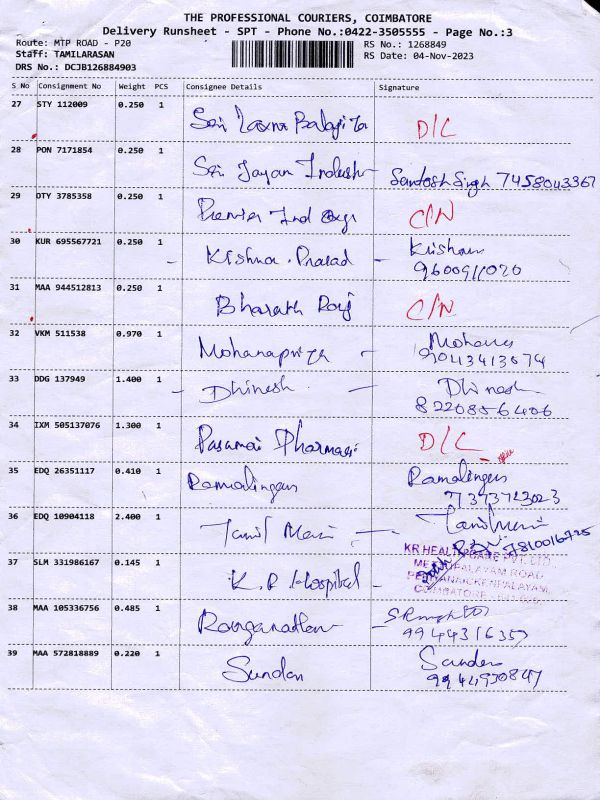 THE PROFESSIONAL COURIERS, COIMBATORE
Delivery Runsheet - SPT - Phone No.:0422-3505555 - Page No.:3
Route: MTP ROAD - P20
RS No.: 1268849
Staff: TAMILARASAN
RS Date: 04-Nov-2023
DRS No.: DCJB126884903
S No Consignment No Weight PCS Consignee Details Signature
27 STY 112009 0.250 1 Sri D/C
28 PON 7171854 0.250 1 Sri Santosh Singh 7458043367
29 OTY 3785358 0.250 1 Premier Ind C/N
30 KUR 695567721 0.250 1 - Krishna. Prasad -
9600911020
31 MAA 944512813 0.250 1 Bharath Raj C/N
32 VKM 511538 0.970 1 Mohanapriya -
9043413674
33 DDG 137949 1.400 1 - Dhinesh. - Dhinesh
8220856406
34 IXM 505137076 1.300 1 D/C
35 EDQ 26351117 0.410 1 Ramalingam Ramalingam
7373723023
36 EDQ 10904118 2.400 1 Tamil Mani - Tamil Mani
7810016725
KR HEALTHCARE PVT. LTD.,
37 SLM 331986167 0.145 1 K.R Hospital
METTUPALAYAM ROAD,
COIMBATORE
38 MAA 105336756 0.485 1 Ranganathan
9944316353
39 MAA 572818889 0.220 1 Sundar Sundar
9944930847